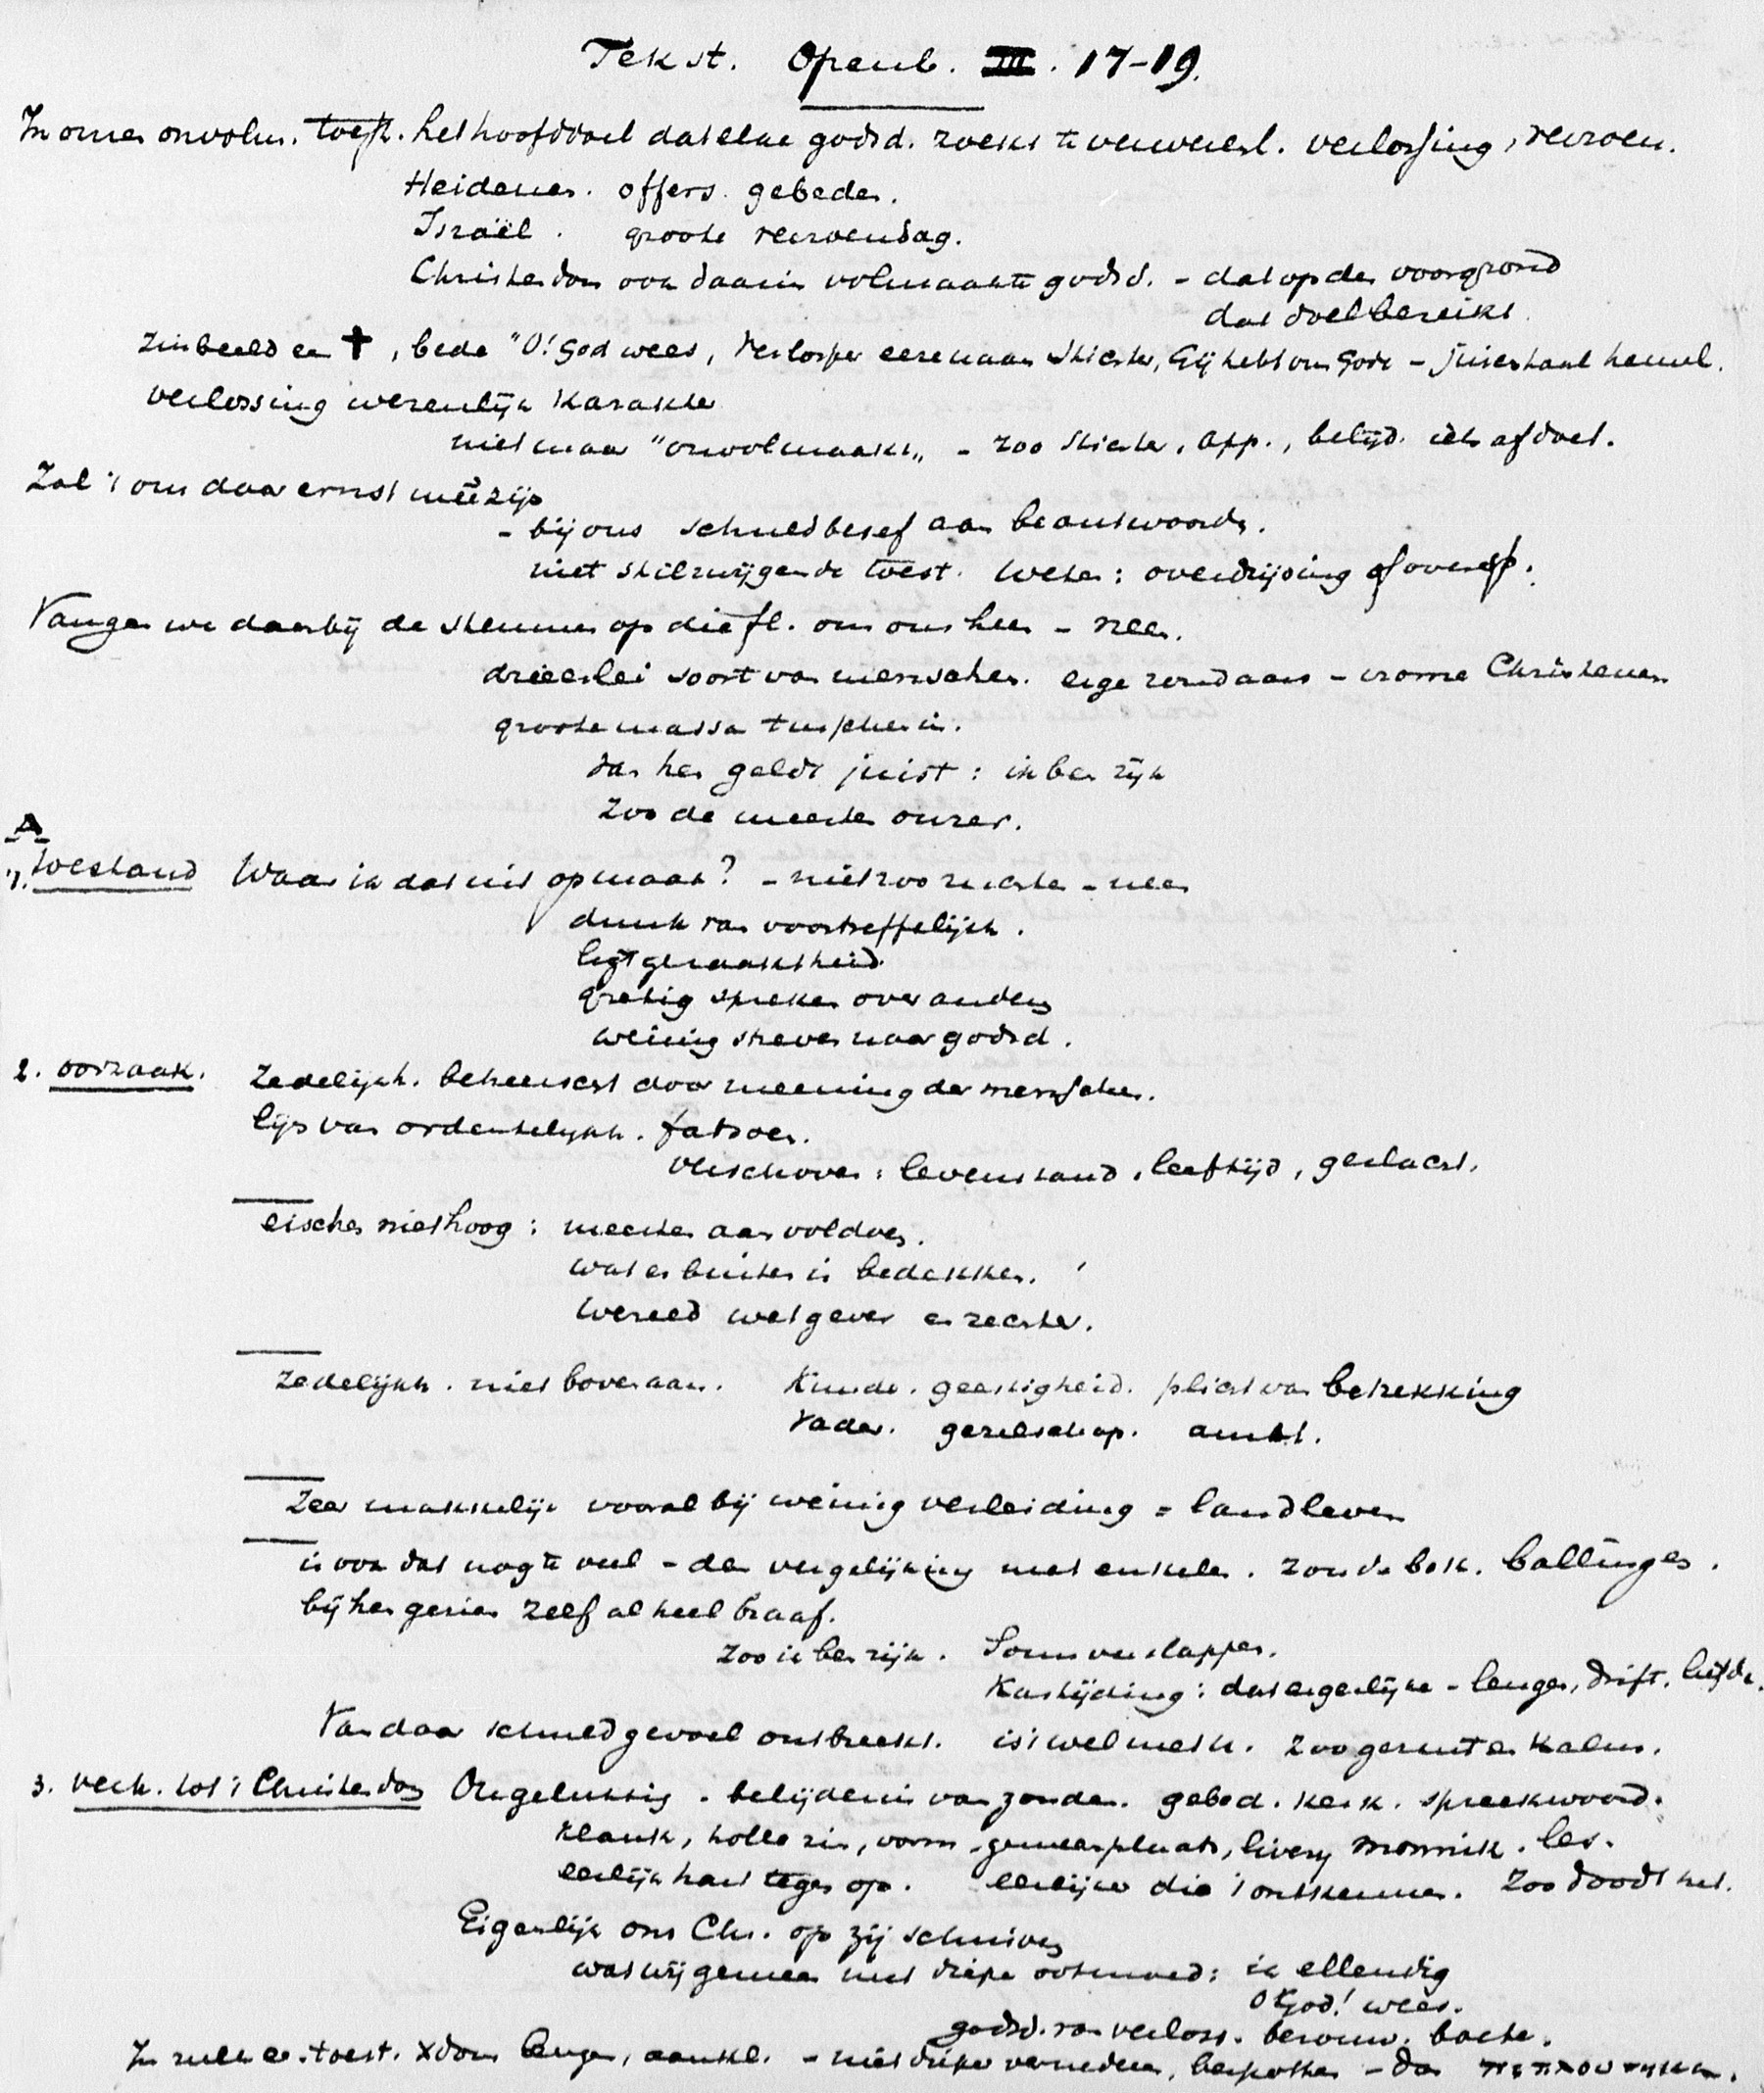 Tekst. Openb. III. 17-19.
In onzen onvolm. toest. het hoofddoel dat elke godsd. zoekt te verwerk. verlossing, verzoen.
Heidenen. offers. gebeden.
Israël. groote verzoendag.
Christendom ook daarin volmaakte godsd. - dat op den voorgrond
dat doel bereikt.
Zinbeeld een ✝, bede "O! God wees, Verlosser eerenaam Stichter, Gij hebt ons Gode - juichtaal hemel.
verlossing wezenlijk karakter
niet maar "onvolmaakt" - zoo Stichter, App., belijd. iets afdoet.
Zal 't ons daar ernst meê zijn
- bij ons schuldbesef aan beantwoorden.
niet stilzwijgende toest. weten: overdrijving of
Vangen we daarbij de stemmen op die om ons heen - neen.
drieerlei soort van menschen. enge zondaars - vrome Christenen
groote massa tusschen in.
van hen geldt juist: ik ben rijk
Zoo de meesten onzer.
A
1. toestand Waar ik dat uit opmaak? - niet zoo zuchten - neen
dunk van voortreffelijkh.
ligtgeraaktheid.
gretig spreken over anderen
weinig streven naar godsd.
2. oorzaak. Zedelijkh. beheerscht door meening der menschen.
lijn van ordentelijkh. fatsoen.
verschoven: levensstand, leeftijd, geslacht.
eischen niet hoog: meesten aan voldoen.
wat er buiten is bedekken.
Wereld wetgever en rechter.
Zedelijkh. niet bovenaan. Kunde. geestigheid. plicht van betrekking
Vader. gezelschap. ambt.
Zeer makkelijk vooral bij weinig verleiding = landleven
is ook dat nog te veel - dan vergelijking met enkelen. zondebok. ballingen.
bij hen gezien zelf al heel braaf.
Zoo ik ben rijk. Soms verslappen.
Kastijding: dat eigenlijke - leugen, drift, liefde.
Van daar schuldgevoel ontbreekt. is 't wel merk. zoo gerust en kalm.
3. verh. tot 't Christendom Ongelukkig. belijdenis van zonden. gebed. kerk. spreekwoord.
klank, holle zin, vorm, gemeenplaats, livery monnik. les.
eerlijk hart tegen op. eerlijker die 't ontkennen. Zoo doodt het.
Eigenlijk ons Chr. op zij schuiven
wat wij gemeen met diepe ootmoed: ik ellendig
O God! wees.
godsd. van verloss. berouw. boete.
In zulk een toest. Xdom leugen, aankl. - niet dieper vernederen, bespotten - dan